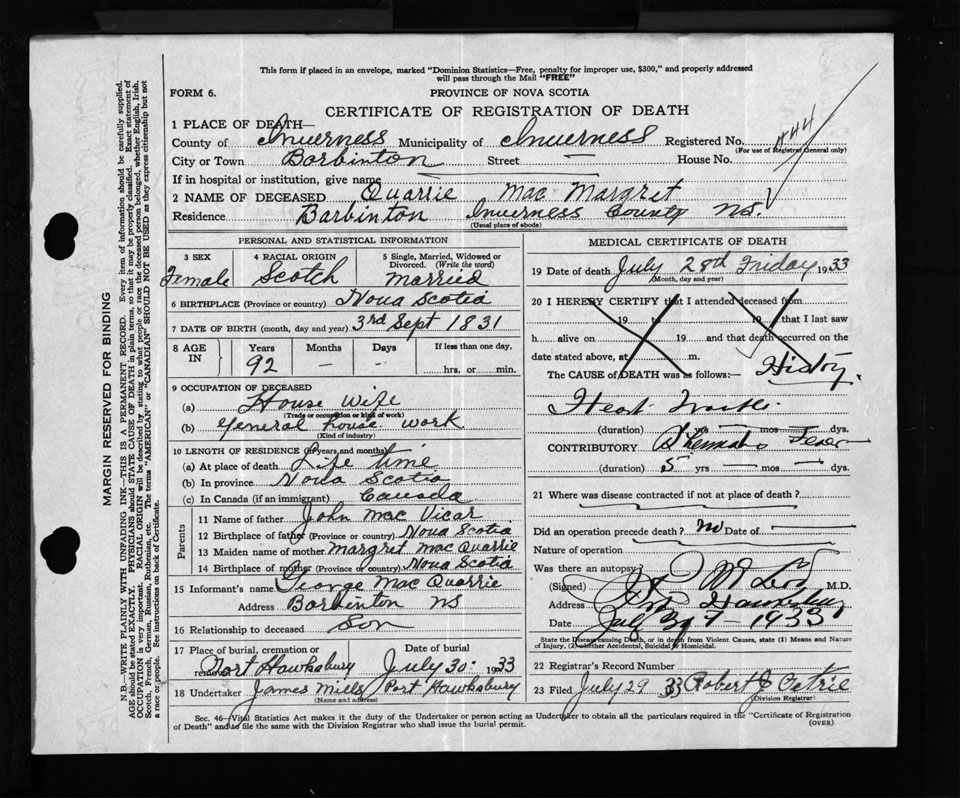 This form if placed in an envelope, marked "Dominion Statistics—Free, penalty for improper use, $300," and properly addressed
will pass through the Mail "FREE"
FORM 6.
PROVINCE OF NOVA SCOTIA
CERTIFICATE OF REGISTRATION OF DEATH
1 PLACE OF DEATH—
County of Inverness Municipality of Inverness Registered No. 444
(For use of Registrar General only)
City or Town Barbinton Street — House No.
If in hospital or institution, give name
2 NAME OF DECEASED Quarrie Mac Margret
Residence Barbinton Inverness County NS.
(Usual place of abode)
PERSONAL AND STATISTICAL INFORMATION
3 SEX 4 RACIAL ORIGIN 5 Single, Married, Widowed or
Divorced. (Write the word)
Female Scotch Married
6 BIRTHPLACE (Province or country) Nova Scotia
7 DATE OF BIRTH (month, day and year) 3rd Sept 1831
8 AGE IN Years Months Days If less than one day,
92 — — hrs. or min.
9 OCCUPATION OF DECEASED
(a) House wife
(Trade or occupation or kind of work)
(b) General house work
(Kind of industry)
10 LENGTH OF RESIDENCE (in years and months)
(a) At place of death Life time
(b) In province Nova Scotia
(c) In Canada (if an immigrant) Canada
Parents
11 Name of father John Mac Vicar
12 Birthplace of father (Province or country) Nova Scotia
13 Maiden name of mother Margret Mac Quarrie
14 Birthplace of mother (Province or country) Nova Scotia
15 Informant's name George Mac Quarrie
Address Barbinton NS
16 Relationship to deceased Son
17 Place of burial, cremation or removal Date of burial
Port Hawksbury July 30 1933
18 Undertaker James Mills Port Hawksbury
(Name and address)
MEDICAL CERTIFICATE OF DEATH
19 Date of death July 28th Friday 1933
(Month, day and year)
20 I HEREBY CERTIFY that I attended deceased from
19 to 19 that I last saw
h alive on 19 and that death occurred on the
date stated above, at m.
The CAUSE of DEATH was as follows:— History.
Heart
(duration) yrs — mos — dys.
CONTRIBUTORY Fever
(duration) 5 yrs — mos — dys.
21 Where was disease contracted if not at place of death?
Did an operation precede death? No Date of —
Nature of operation
Was there an autopsy?
(Signed) M.D.
Address Pt. Hawksbury
Date July 1933
State the Disease causing Death, or in death from Violent Causes, state (1) Means and Nature
of Injury, (2) whether Accidental, Suicidal or Homicidal.
22 Registrar's Record Number
23 Filed July 29 33 Robert J Petrie
(Division Registrar)
Sec. 46—Vital Statistics Act makes it the duty of the Undertaker or person acting as Undertaker to obtain all the particulars required in the "Certificate of Registration
of Death" and to file the same with the Division Registrar who shall issue the burial permit.
(OVER)
MARGIN RESERVED FOR BINDING
N.B.—WRITE PLAINLY WITH UNFADING INK—THIS IS A PERMANENT RECORD. Every item of information should be carefully supplied.
AGE should be stated EXACTLY. PHYSICIANS should STATE CAUSE OF DEATH in plain terms, so that it may be properly classified. Exact statement of
OCCUPATION is very important. RACIAL ORIGIN will be described by stating to what people or race the deceased person belonged, whether English, Irish,
Scotch, French, German, Russian, Ruthenian, etc. The terms "AMERICAN" or "CANADIAN" SHOULD NOT BE USED as they express citizenship but not
a race or people. See instructions on back of Certificate.